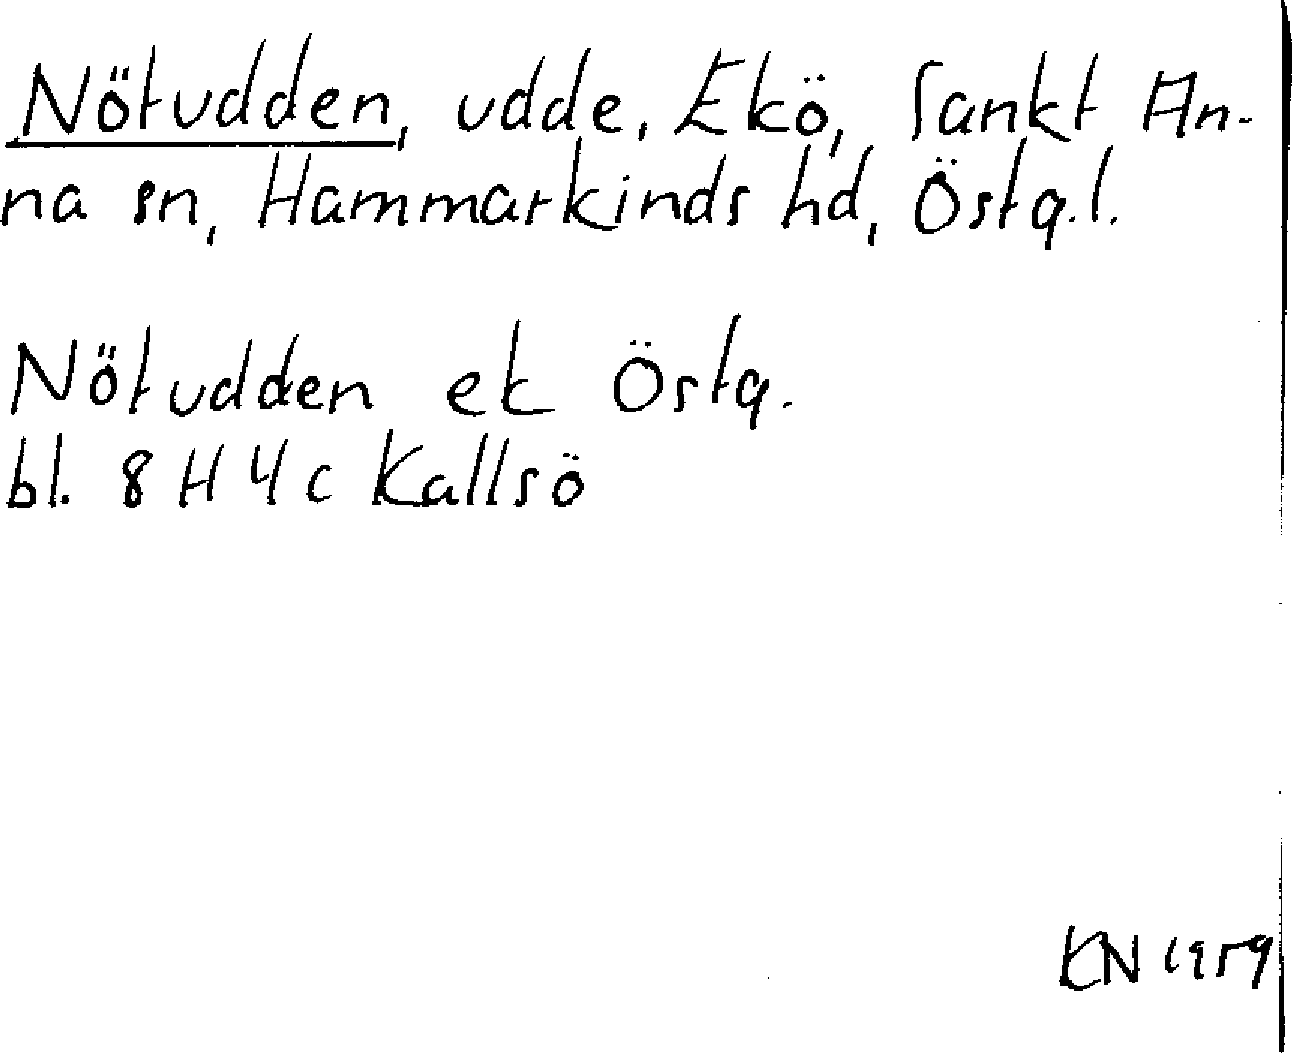 Nötudden, udde, Ekö, Sankt An-
na sn, Hammarkinds hd, Östg.l.
Nötudden ek Östg.
bl. 8 H 4 c Kallsö
KN 1959